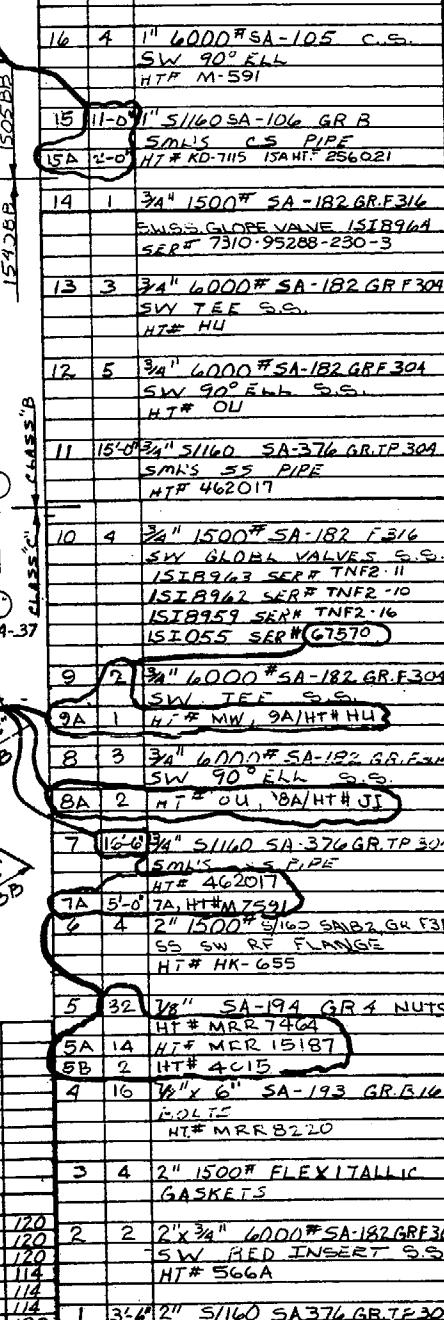 16 4 1" 6000# SA-105 C.S.
SW 90° ELL
HT# M-591
15 11-0" 1" S/160 SA-106 GR B
SML'S CS PIPE
15A 2'-0" HT# KD-7115 15A HT# 256021
14 1 3/4" 1500# SA-182 GR.F316
SW S.S. GLOPE VALVE 1SI8964
SER# 7310-95288-230-3
13 3 3/4" 6000# SA-182 GR F304
SW TEE S.S.
HT# HU
12 5 3/4" 6000# SA-182 GRF304
SW 90° ELL S.S.
HT# OU
11 15'-0" 3/4" S/160 SA-376 GR.TP 304
SML'S SS PIPE
HT# 462017
10 4 3/4" 1500# SA-182 F316
SW GLOBE VALVES S.S.
1SI8963 SER# TNF2-11
1SI8962 SER# TNF2-10
1SI8959 SER# TNF2-16
1SI055 SER# 67570
9 2 3/4" 6000# SA-182 GR.F304
SW TEE S.S.
9A 1 HT# MW, 9A/HT# HU
8 3 3/4" 6000# SA-182 GR.
SW 90° ELL S.S.
8A 2 HT# OU, 8A/HT# JI
7 16'-6" 3/4" S/160 SA-376 GR.TP 304
SML'S S.S PIPE
HT# 462017
7A 5'-0" 7A, HT# M7591
6 4 2" 1500# S/160 SA182 GR F31
SS SW RF FLANGE
HT# HK-655
5 32 7/8" SA-194 GR 4 NUTS
HT# MRR 7464
5A 14 HT# MER 15187
5B 2 HT# 4C15
4 16 7/8" x 6" SA-193 GR.B16
BOLTS
HT# MRR8220
3 4 2" 1500# FLEXITALLIC
GASKETS
2 2 2"x3/4" 6000# SA-182GRF30
SW RED INSERT S.S.
HT# 566A
1 3'-6" 2" S/160 SA376 GR.TP30
1505BB
1542BB
CLASS "B"
CLASS "C"
A-37
120
120
120
114
114
114